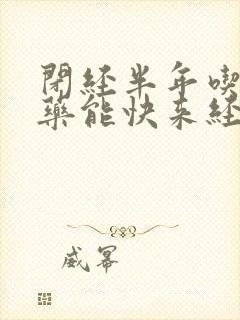 閉經半年喫
藥能快來經
威冪